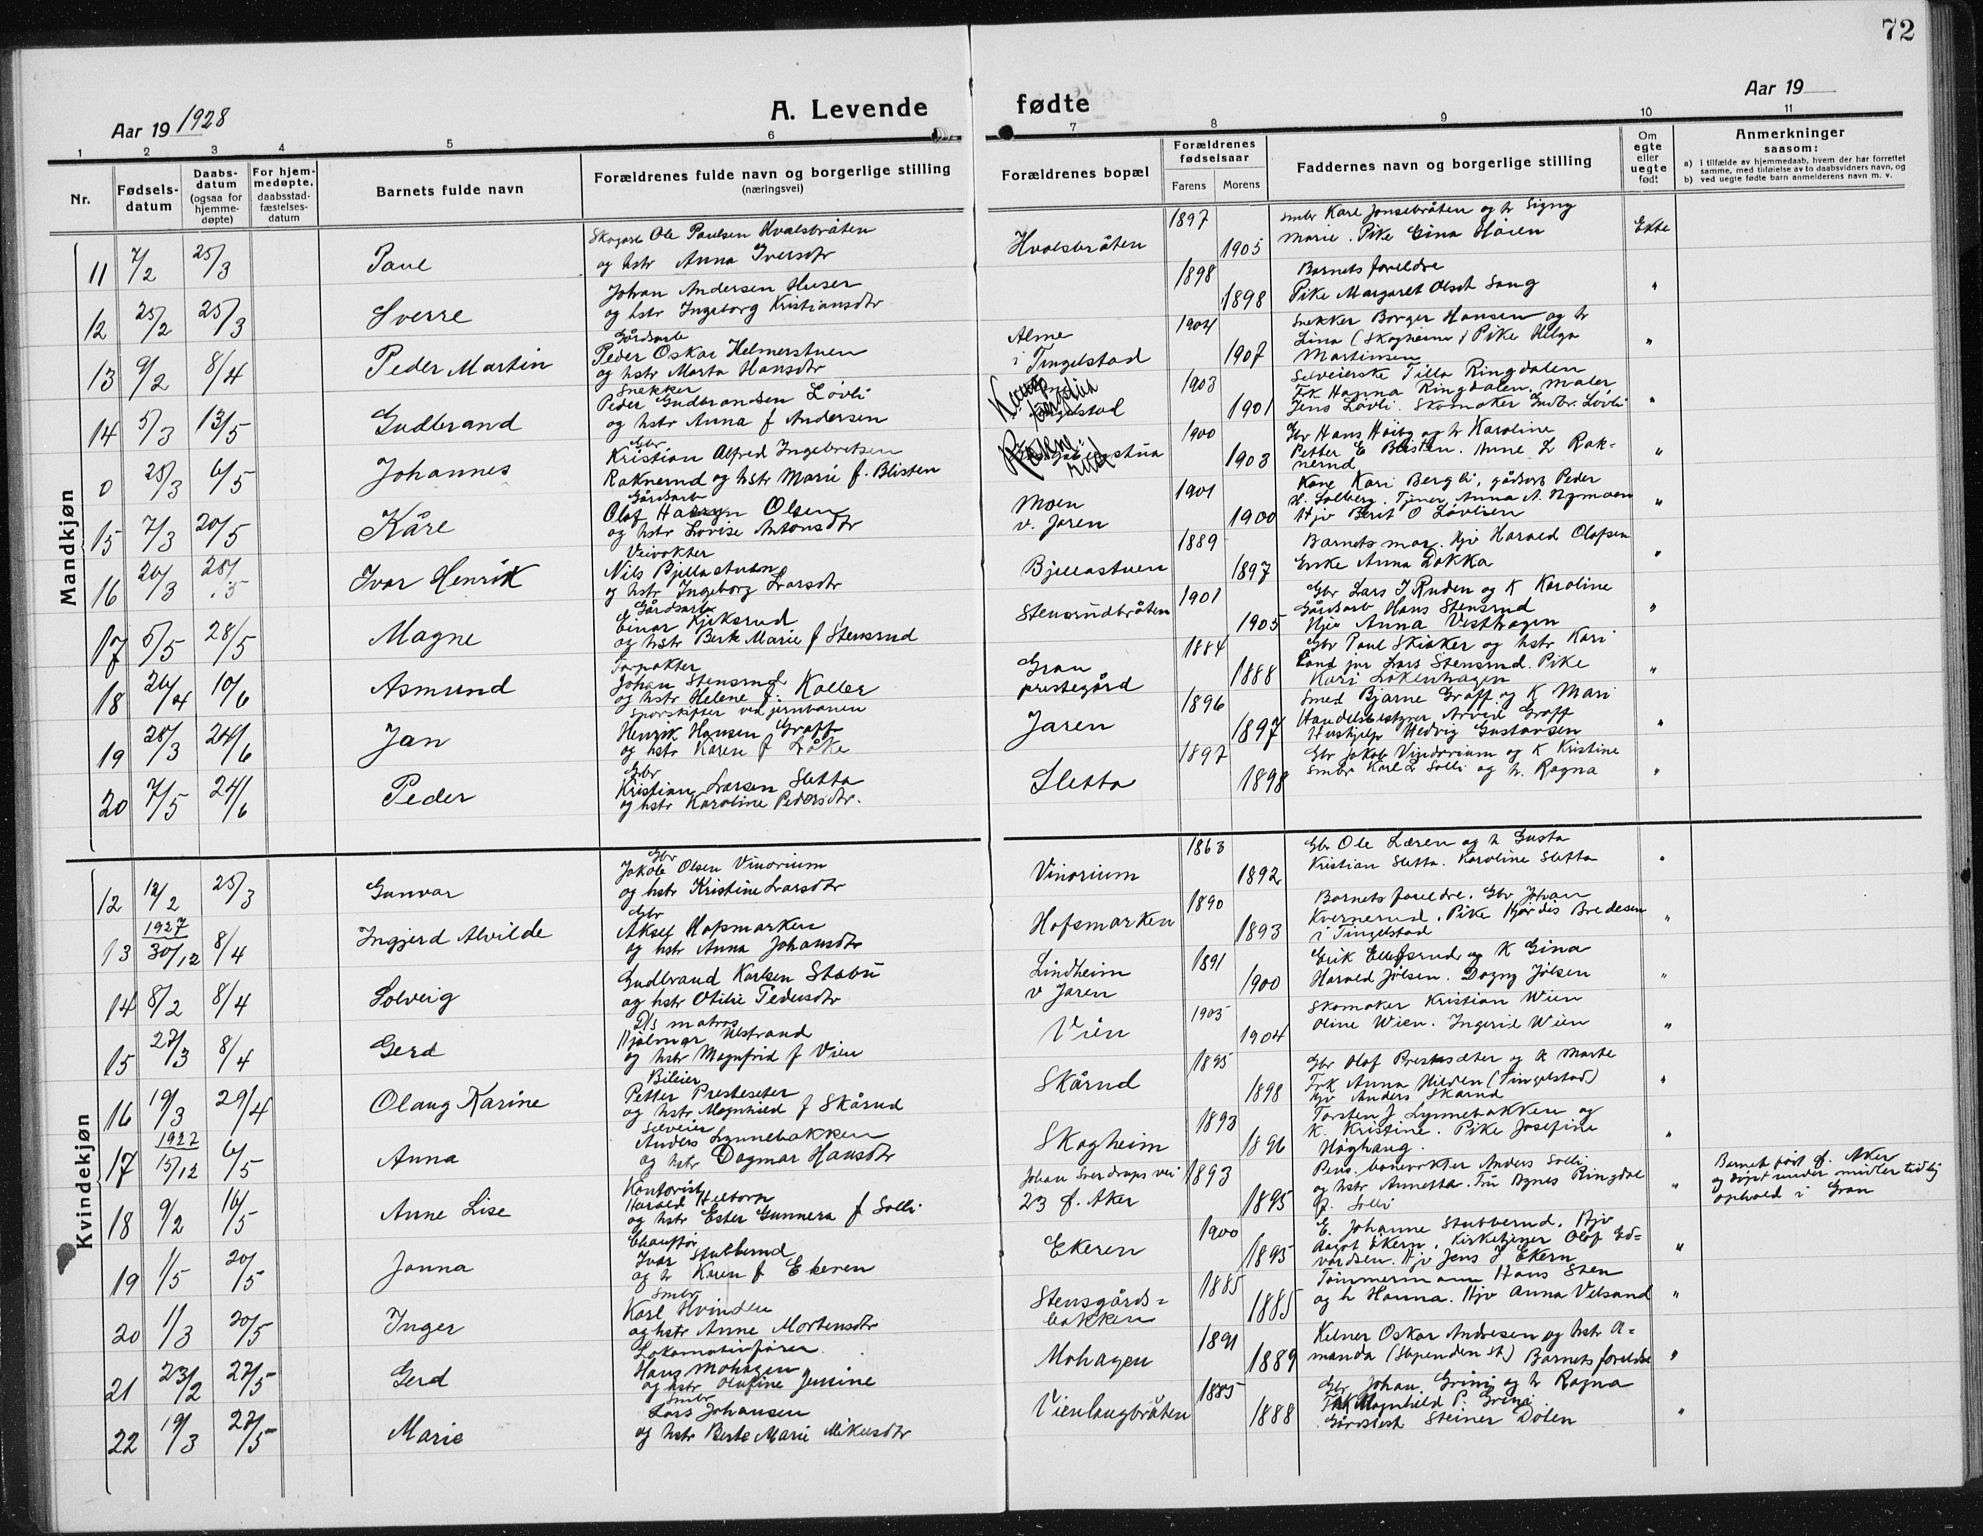 72
Aar 19 1928
A. Levende fødte
Aar 19
1 2 3 4 5 6 7 8 9 10 11
Nr.
Fødsels-
datum
Daabs-
datum
(ogsaa for
hjemme-
døpte)
For hjem-
medøpte,
daabsstad-
fæstelses-
datum
Barnets fulde navn
Forældrenes fulde navn og borgerlige stilling
(næringsvei)
Forældrenes bopæl
Forældrenes
fødselsaar
Farens Morens
Faddernes navn og borgerlige stilling
Om
egte
eller
uegte
født
Anmerkninger
saasom:
a) i tilfælde av hjemmedaab, hvem der har forrettet
samme, med tilføielse av to daabsvidners navn, og
b) ved uegte fødte barn anmelderens navn m. v.
Mandkjøn
11 7/2 25/3 Paul
Skogarb Ole Paulsen Hvalsbråten
og hstr Anna Iversdtr
Hvalsbråten 1897 1905
Smbr Karl Jonsebråten og h Signy
Marie. Pike Gina Høien
Ekte
12 25/2 25/3 Sverre
Johan Andersen Huser
og hstr Ingeborg Kristiansdtr
1898 1898
Barnets foreldre
Pike Margaret Olsdt Sang
"
13 9/2 8/4 Peder Martin
Gårdsarb
Peder Oskar Helmerstuen
og hstr Marta Hansdtr
Alme
i Tingelstad
1904 1907
Snekker Borger Hansen og h
Lina (Skogheim) Pike Helga
Martinsen
"
14 5/3 13/5 Gudbrand
Snekker
Peder Gudbrandsen Løvli
og hstr Anna f Andersen
1903 1901
Selveierske Tilla Ringdalen
Frk Hanna Ringdalen. Maler
Jens Løvli. Skomaker Gudbr. Løvli
"
0 25/3 6/5 Johannes
Gbr
Kristian Alfred Ingebretsen
Raknerud og hstr Marie f. Blisten
1900 1903
Gbr Hans Høiby og h Karoline
Petter E Blisten. Anne L Rak-
nerud
"
15 7/3 20/5 Kåre
Gårdsarb
Olaf Olsen
og hstr Lovise Antonsdtr
Moen
v. Jaren
1901 1900
Kone Kari Bergli, gårdsarb Peder
H. Solberg. Tjener Anna A. Nymoen
Hjv Berit O Løvlien
"
16 20/3 28/5 Ivar Henrik
Veivokter
Nils Bjellastuen
og hstr Ingeborg Larsdtr
Bjellastuen 1889 1897
Barnets mor. Hjv Harald Olafsen
Enke Anna Dokka
"
17 5/5 28/5 Magne
Gårdsarb
Einar Kjeksrud
og hstr Berte Marie f Stensrud
Stensrudbråten 1901 1905
Gbr Lars J Ruden og K Karoline
Gårdsarb Hans Stensrud
Hjv Anna Vesthagen
"
18 26/4 10/6 Asmund
Forpakter
Johan Stensrud
og hstr Helene f. Koller
Gran
prestegård
1884 1888
Gbr Paul Skiaker og hstr Kari
Cand jur Lars Stensrud. Pike
Kari Løkenhagen
"
19 28/3 24/6 Jan
Sporskifter ved jernbanen
Henrik Hansen Graff
og hstr Karen f Låke
Jaren 1896 1897
Smed Bjarne Graff og K Mari
Handelsbestyrer Arved Graff
Hushjelp Hedvig Gustavsen
"
20 7/5 24/6 Peder
Gbr
Kristian Larsen Sletta
og hstr Karoline Pedersdtr.
Sletta 1897 1898
Gbr Jakob Vinorium og K Kristine
Smbr Karl L Solli og h. Ragna
"
Kvindekjøn
12 12/2 25/3 Gunvor
Gbr
Jakob Olsen Vinorium
og hstr Kristine Larsdtr
Vinorium 1863 1892
Gbr Ole Læren og h Gusta
Kristian Sletta. Karoline Sletta
"
13 1927 30/12 8/4 Ingjerd Alvilde
Gbr
Aksel Hofsmarken
og hstr Anna Johansdtr
Hofsmarken 1890 1893
Barnets foreldre. Gbr Johan
Kvernerud. Pike Hjørdis Bredesen
i Tingelstad
"
14 8/2 8/4 Solveig
Gudbrand Karlsen Stabu
og hstr Otilie Pedersdtr
Lindheim
v Jaren
1891 1900
Erik Ellefsrud og K Gina
Harald Jølsen. Dagny Jølsen
"
15 27/3 8/4 Gerd
D/s matros
Hjalmar Ulstrand
og hstr Magnfrid f Vien
Vien 1903 1904
Skomaker Kristian Wien
Oline Wien. Ingerid Wien
"
16 19/3 29/4 Olaug Karine
Bileier
Petter Prestesæter
og hstr Magnhild f Skårud
Skårud 1895 1898
Gbr Olaf Prestesæter og h Marte
Frk Anna Hilden (Tingelstad)
Hjv Anders Skarud
"
17 1927 15/12 6/5 Anna
Selveier
Anders Lynnebakken
og hstr Dagmar Hansdtr
Skogheim 1893 1896
Torsten J Lynnebakken og
K. Kristine. Pike Josefine
Høghaug.
"
18 9/2 16/5 Anne Lise
Kontorist
Harald Helborn
og hstr Ester Gunnera f Solli
Johan Sverdrups vei
23 Ø. Aker
1893 1895
Pens. banevokter Anders Solli
og hstr Annetta. Fru Agnes Ringdal
f. Solli
"
Barnet født Ø. Aker
og døpt under midlertidig
ophold i Gran
19 1/5 20/5 Janna
Chauffør
Ivar Stubberud
og h Karen f Ekeren
Ekeren 1900 1895
E. Johanne Stubberud. Hjv
Aagot Ekern. Kirketjener Olaf Ed-
vardsen. Hjv Jens J Ekern
"
20 1/3 20/5 Inger
Smbr
Karl Hvinden
og hstr Anne Mortensdtr
Stensgårds-
bakken
1885 1885
Tømmermann Hans Sten
og h Hanna. Hjv Anna Velsand
"
21 23/2 27/5 Gerd
Lokomotivfører
Hans Mohagen
og hstr Olufine Jensine
Mohagen 1891 1889
Kelner Oskar Andresen og hstr A-
manda (Stipenden st.) Barnets foreldre
"
22 19/3 27/5 Marie
Smbr
Lars Johansen
og hstr Berte Marie Mikkelsdtr
Vienlaugbråten 1885 1888
Gbr Johan Grini og h Ragna
Frk Magnhild P. Grini
Gårdbest Steiner Dølen
"